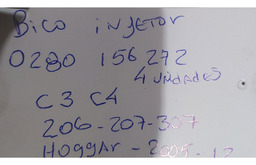 Bico iNJETOR
0280 156 272
4 UNIDADES
C3 C4
206-207-307
HOggAR - 2005-12